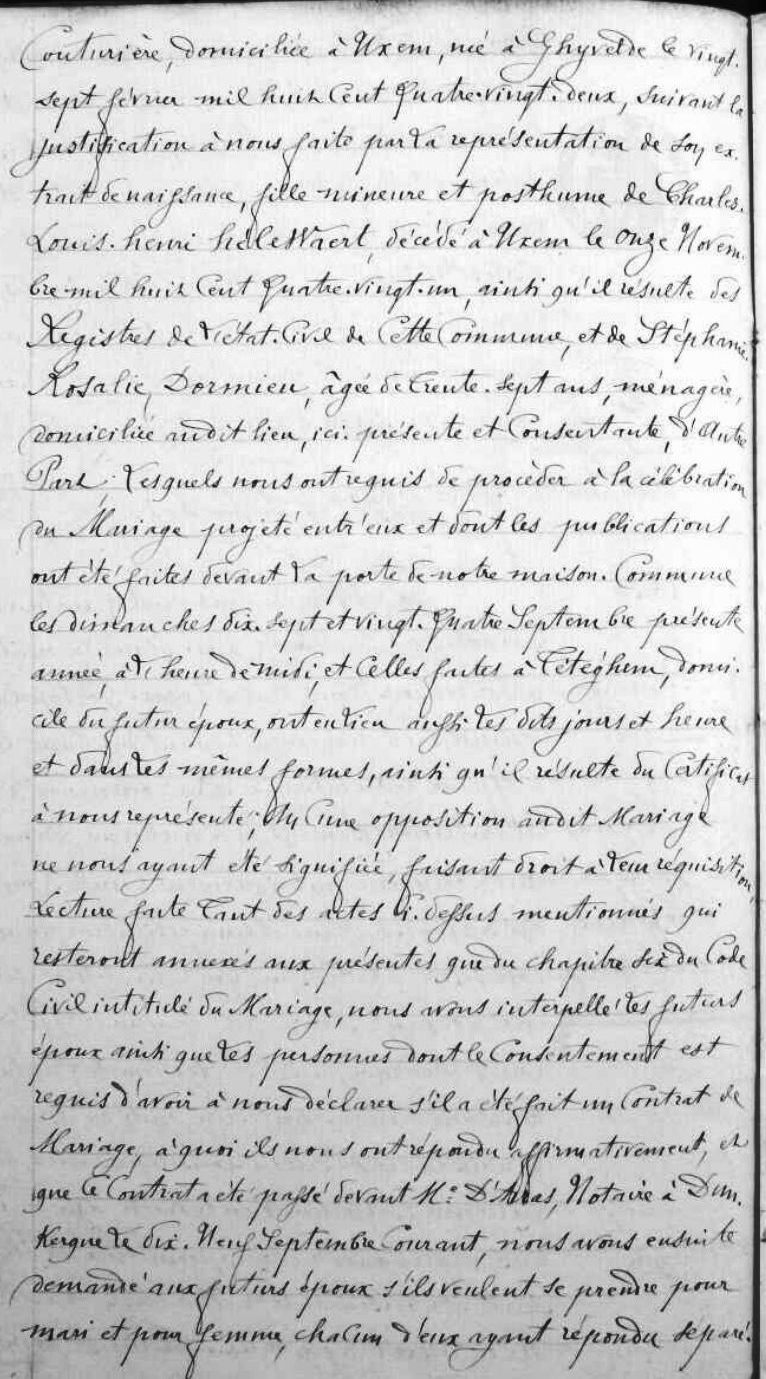 Couturière, domiciliée à Uxem, née à Ghyvelde le vingt.
sept février mil huit Cent Quatre-vingt. deux, suivant la
justification à nous faite par la représentation de son ex.
trait de naissance, fille mineure et posthume de Charles.
Louis. henri helewaert, décédé à Uxem le onze Novem.
bre mil huit Cent Quatre. vingt. un, ainsi qu'il résulte des
Registres de l'état. Civil de Cette Commune, et de Stéphanie.
Rosalie, Dormieu, âgée de trente. sept ans, ménagère,
domiciliée audit lieu, ici. présente et Consentante, d'Autre
Part; Lesquels nous ont requis de procéder à la célébration
du Mariage projeté entr'eux et dont les publications
ont été faites devant la porte de notre maison. Commune
les dimanches dix. sept et vingt. Quatre Septembre présente
année, à l'heure de midi, et Celles faites à Téteghem, domi.
cile du futur époux, ont eu lieu aussi les dits jours et heure
et dans les mêmes formes, ainsi qu'il résulte du Certificat
à nous représenté; Aucune opposition audit Mariage
ne nous ayant été signifiée, faisant droit à leur réquisition,
Lecture faite tant des actes Ci. dessus mentionnés qui
resteront annexés aux présentes que du chapitre six du Code
Civil intitulé du Mariage, nous avons interpellé les futurs
époux ainsi que les personnes dont le Consentement est
requis d'avoir à nous déclarer s'il a été fait un Contrat de
Mariage, à quoi ils nous ont répondu affirmativement, et
que le Contrat a été passé devant Me. Notaire à Dun.
Kerque le dix. Neuf Septembre Courant, nous avons ensuite
demandé aux futurs époux s'ils veulent se prendre pour
mari et pour femme, chacun d'eux ayant répondu séparé.